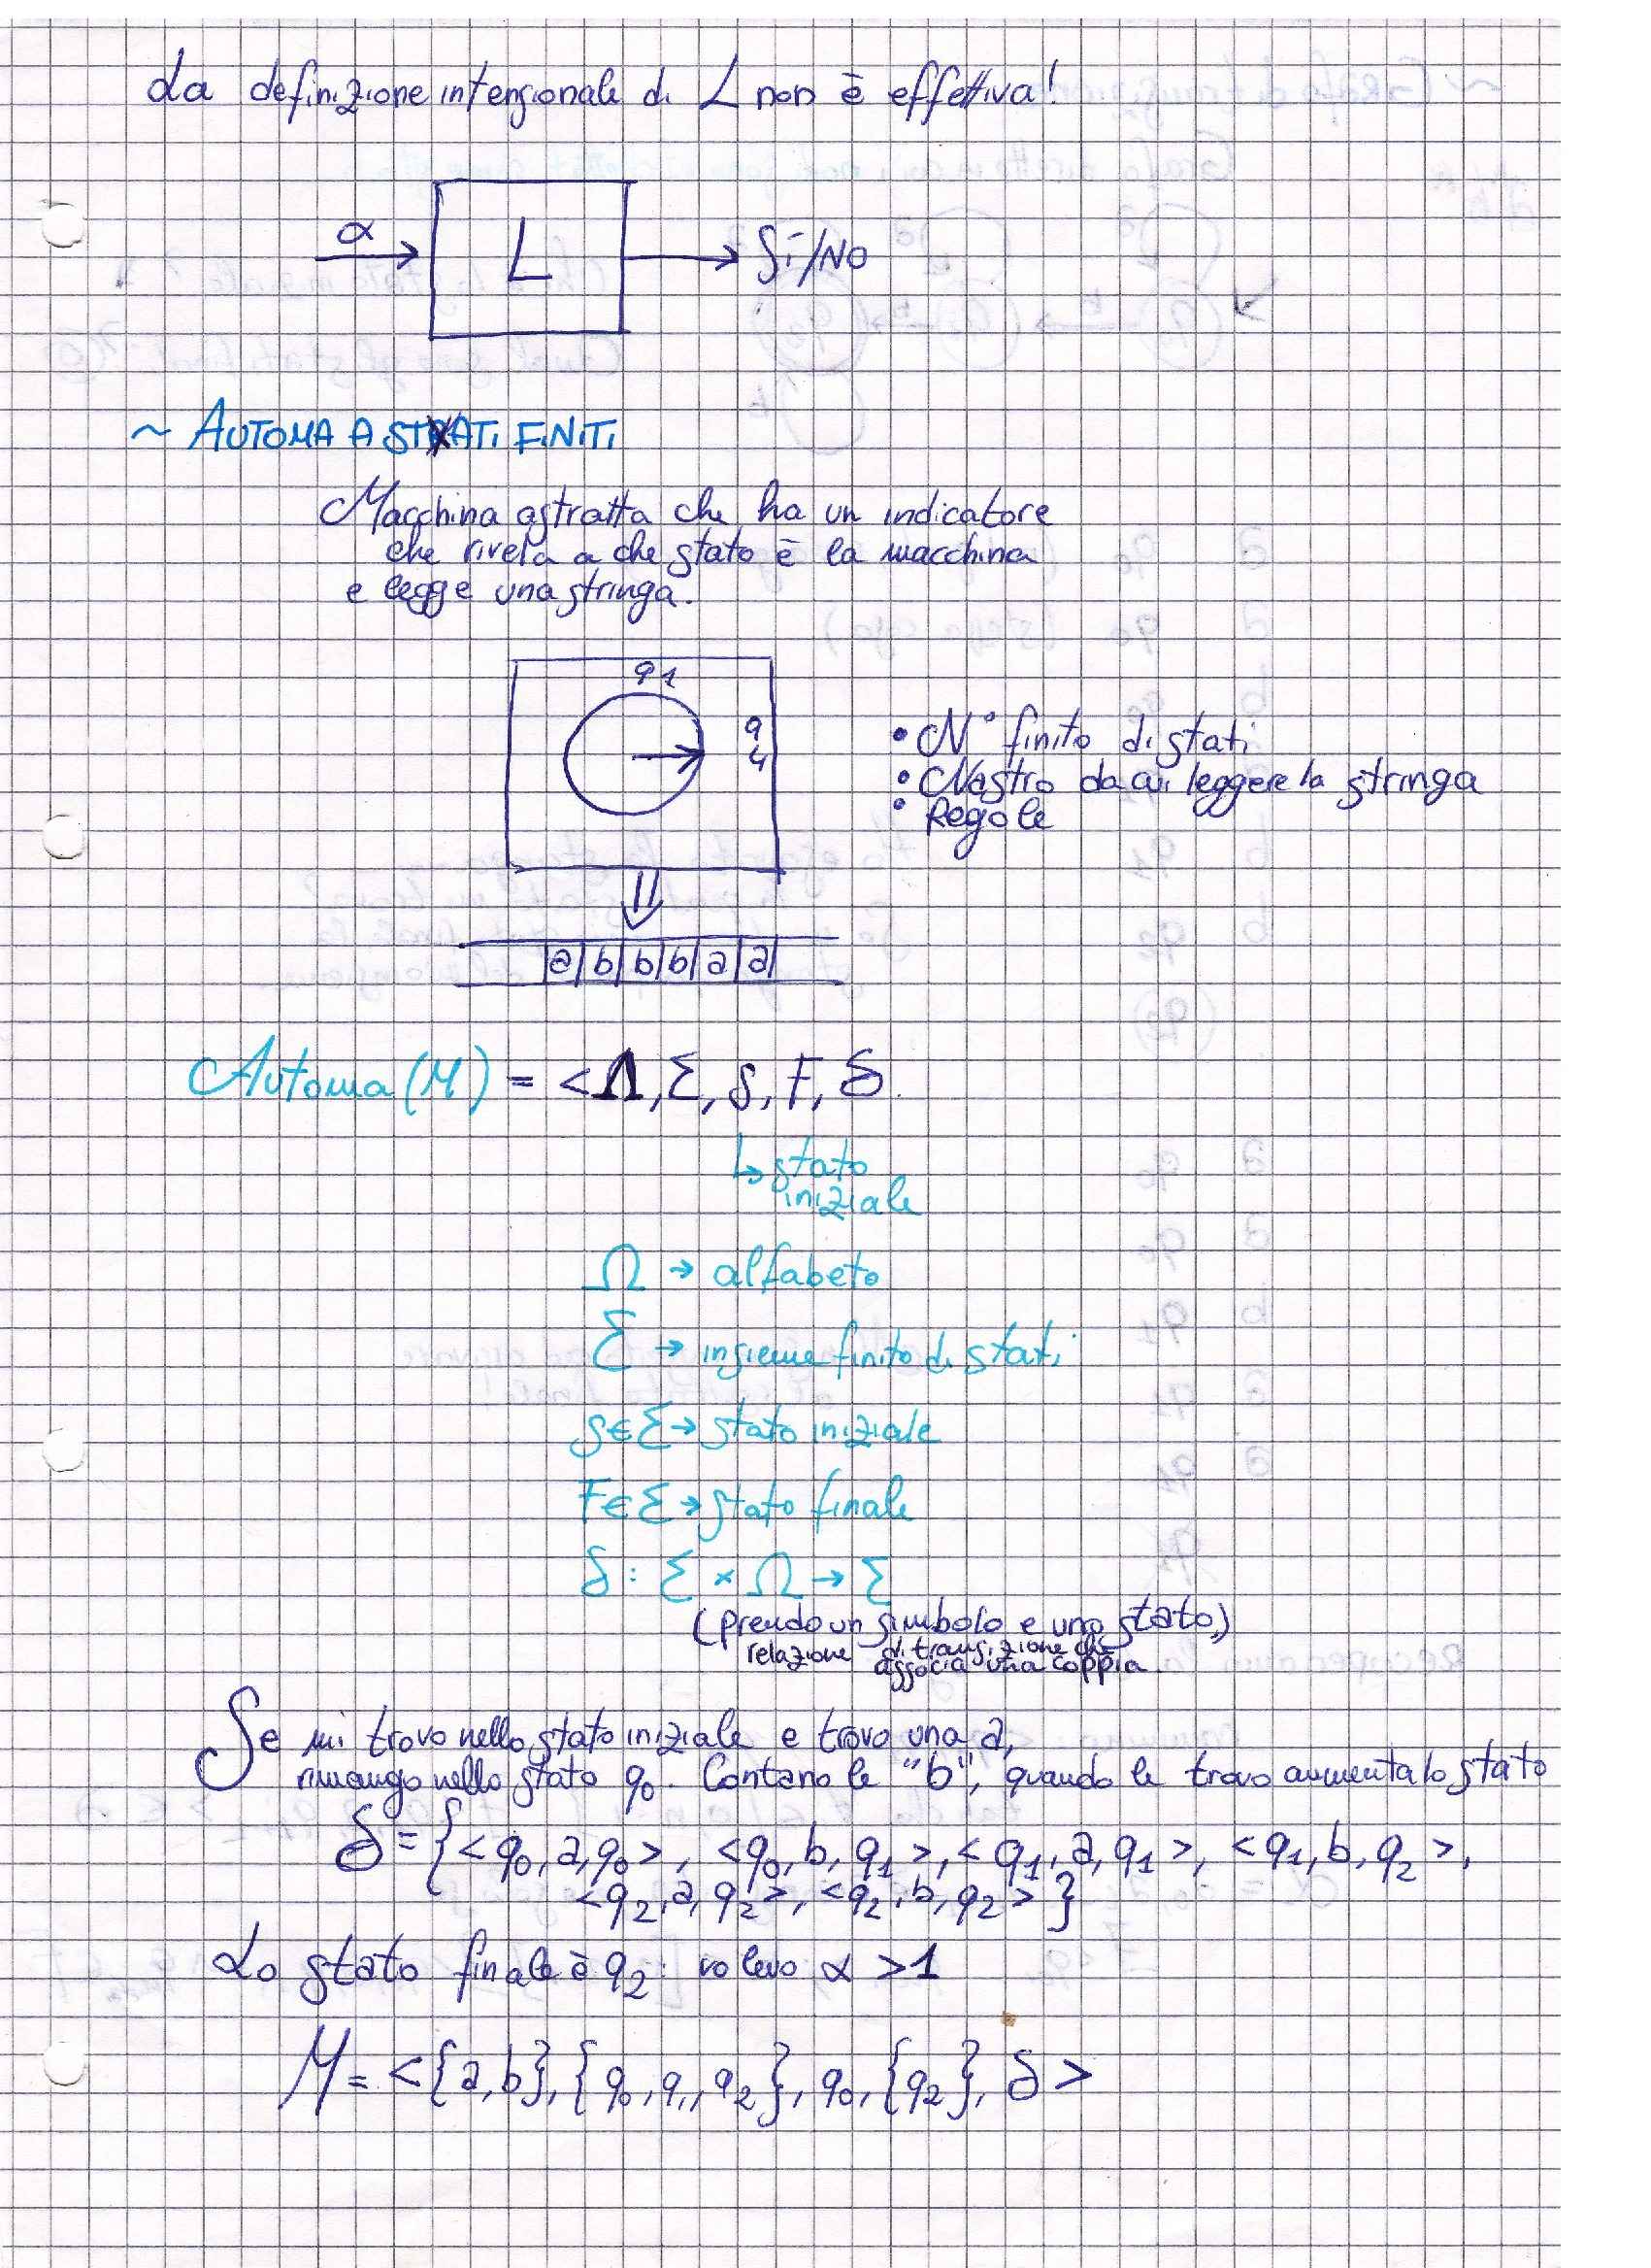 La definizione intensionale di L non è effettiva!
α
L
Sì/NO
~ AUTOMA A STATI FINITI
Macchina astratta che ha un indicatore
che rivela a che stato è la macchina
e legge una stringa.
q1
q4
• N° finito di stati
• Nastro da cui leggere la stringa
• Regole
a b b b a a
Automa (M) = <Ω, Σ, s, F, δ
↳ stato
iniziale
Ω → alfabeto
Σ → insieme finito di stati
s∈Σ → stato iniziale
F∈Σ → stato finale
δ : Σ × Ω → Σ
(prendo un simbolo e uno stato,)
relazione di transizione che
associa una coppia
Se mi trovo nello stato iniziale e trovo una a,
rimango nello stato q0. Contano le "b", quando le trovo aumenta lo stato
δ = {<q0, a, q0>, <q0, b, q1>, <q1, a, q1>, <q1, b, q2>,
<q2, a, q2>, <q2, b, q2>}
Lo stato finale è q2: volevo α > 1
M = <{a,b}, {q0, q1, q2}, q0, {q2}, δ>